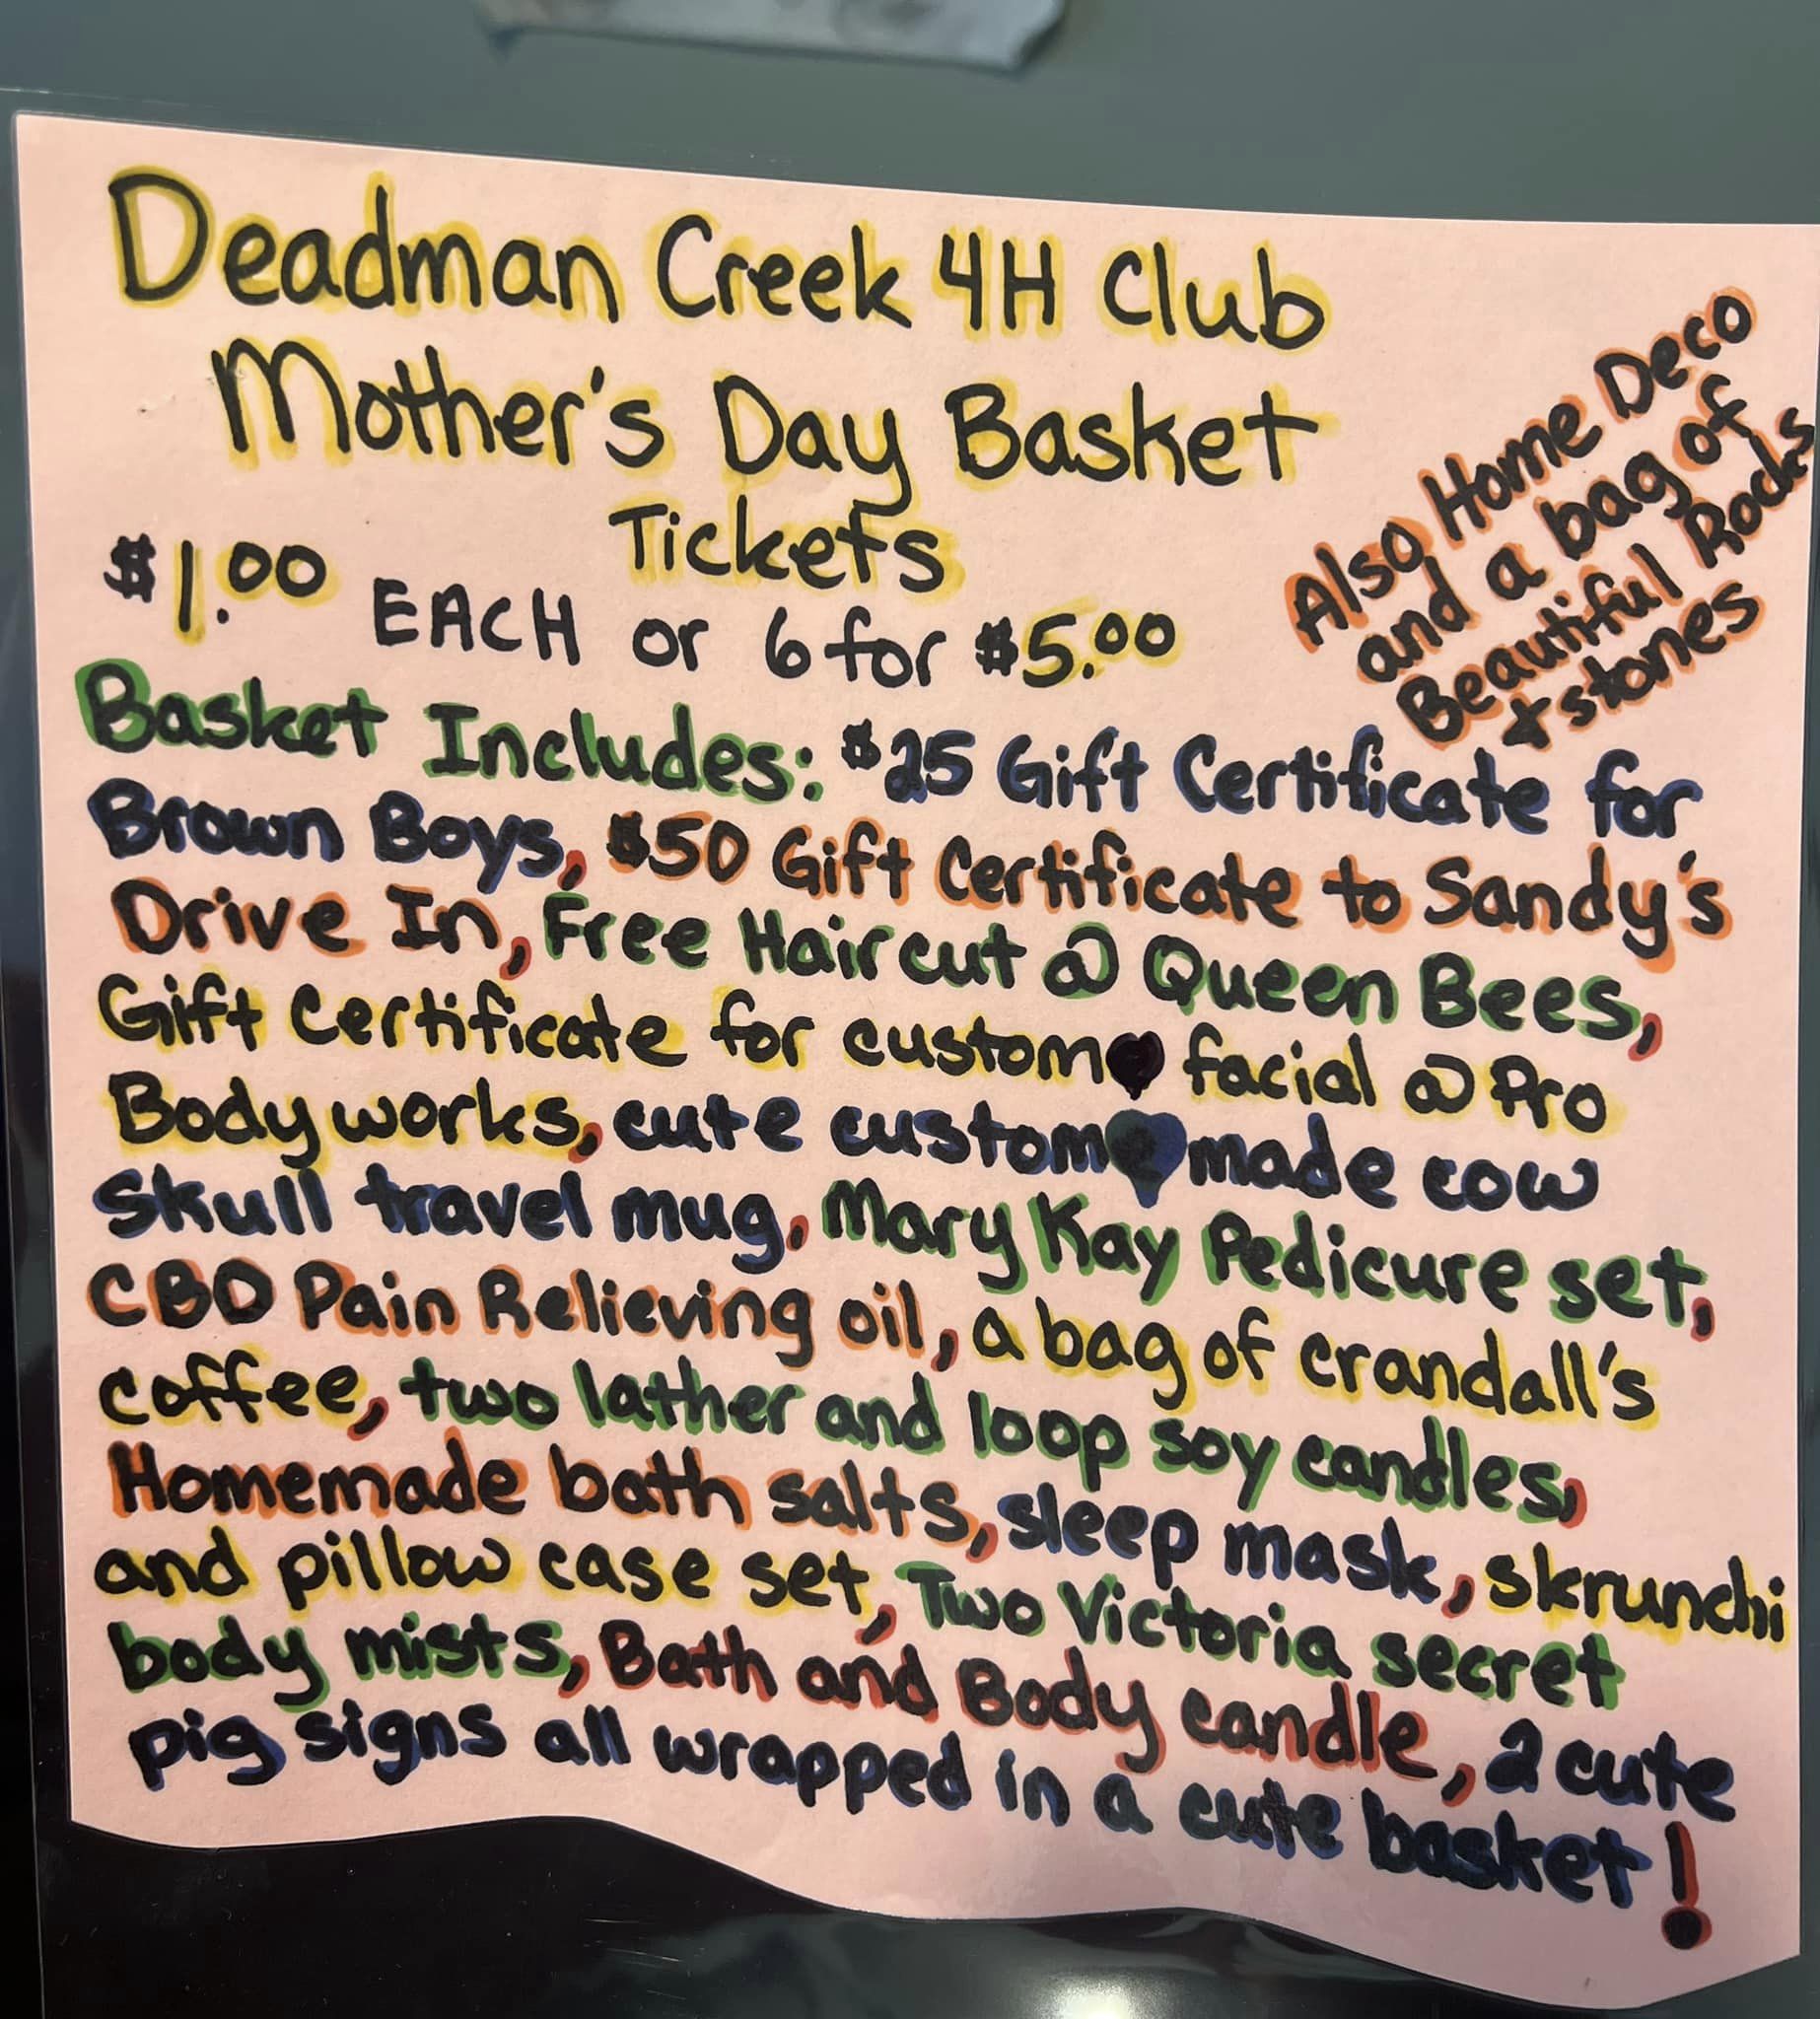 Deadman Creek 4H Club
Mother's Day Basket
Tickets
$1.00 EACH or 6 for $5.00
Also Home Deco
and a bag of
Beautiful Rocks
+ stones
Basket Includes: $25 Gift Certificate for
Brown Boys, $50 Gift Certificate to Sandy's
Drive In, Free Haircut @ Queen Bees,
Gift Certificate for custom facial @ Pro
Body works, cute custom made cow
Skull travel mug, Mary Kay Pedicure set,
CBD Pain Relieving oil, a bag of crandall's
coffee, two lather and loop soy candles,
Homemade bath salts, sleep mask, skrunchi
and pillow case set, Two Victoria secret
body mists, Bath and Body candle, 2 cute
pig signs all wrapped in a cute basket!